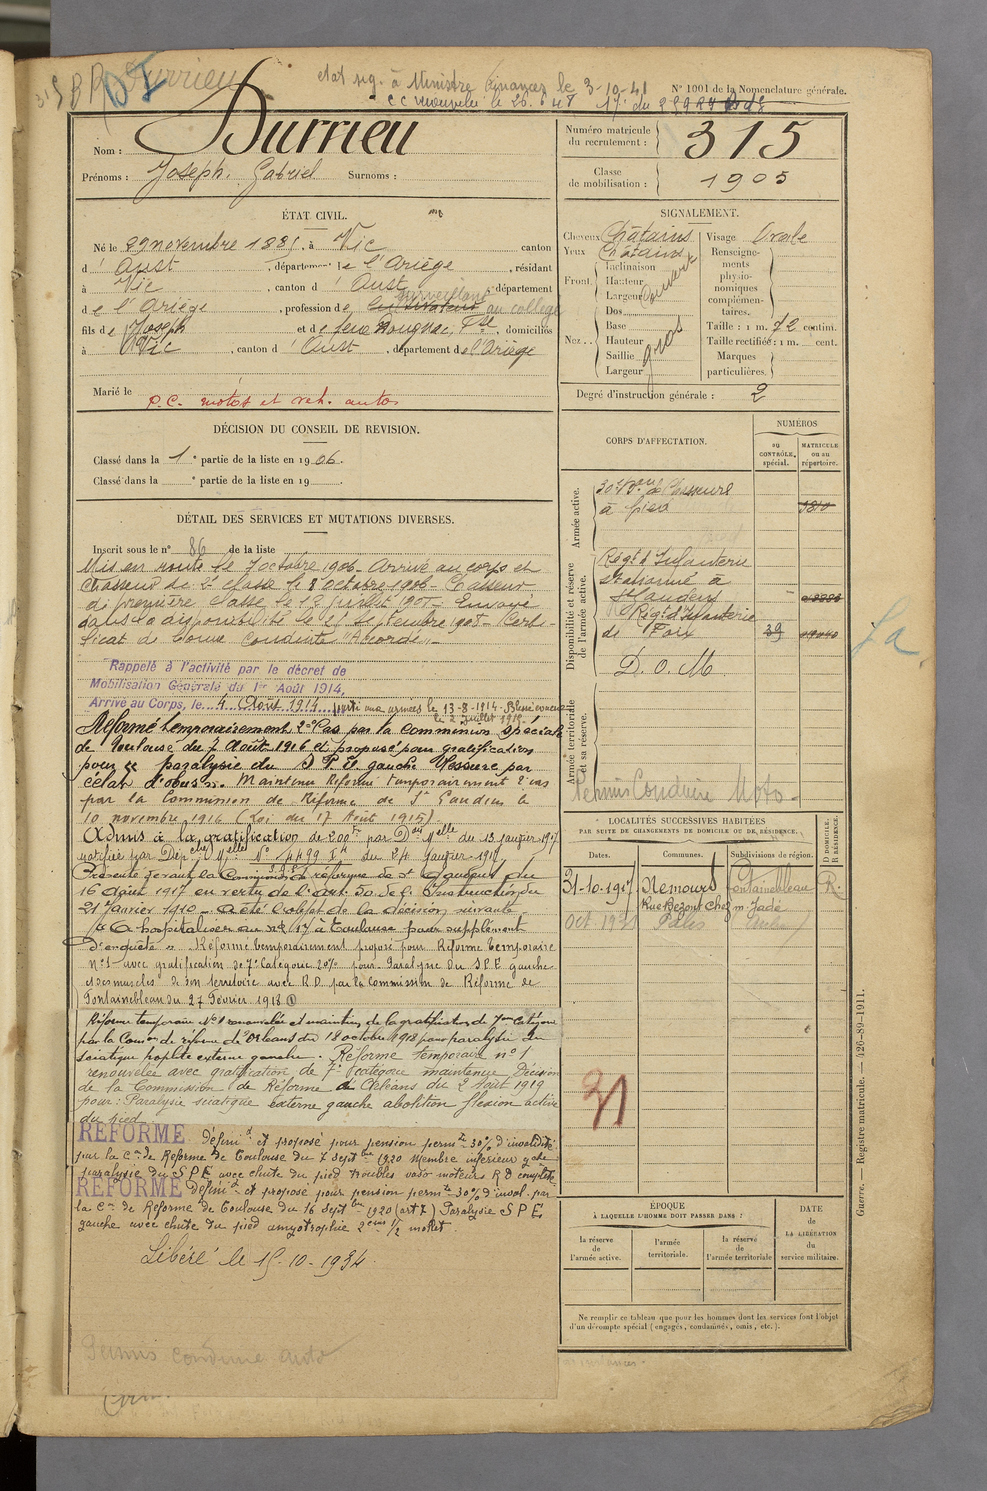 Durrieu
état sig. à Ministre Finances le 3-10-41
N° 1001 de la Nomenclature générale.
Nom : Durrieu
Prénoms : Joseph. Gabriel Surnoms :
Numéro matricule du recrutement : 315
Classe de mobilisation : 1905
ÉTAT CIVIL.
Né le 29 novembre 1885. à Vic canton
d' Oust, département de l'Ariège, résidant
à Vic, canton d' Oust, département
de l'Ariège, profession de cultivateur surveillant au collège
fils de Joseph et de Rougnac, domiciliés
à Vic, canton d' Oust, département de l'Ariège
Marié le
P.C. motos et veh. autos
SIGNALEMENT.
Cheveux Châtains
Yeux Châtains
Front. Inclinaison
Hauteur
Largeur
Nez.. Dos
Base
Hauteur
Saillie
Largeur
gros
Visage Ovale
Renseignements physionomiques complémentaires.
Taille : 1 m. 72 centim.
Taille rectifiée : 1 m. cent.
Marques particulières.
Degré d'instruction générale : 2
DÉCISION DU CONSEIL DE REVISION.
Classé dans la 1e partie de la liste en 1906.
Classé dans la e partie de la liste en 19
DÉTAIL DES SERVICES ET MUTATIONS DIVERSES.
Inscrit sous le n° 86 de la liste
Mis en route le 7 octobre 1906. Arrivé au corps et
chasseur de 2e classe le 8 octobre 1906. Chasseur
de première classe le 12 juillet 1908. Envoyé
dans la disponibilité le 25 septembre 1908. Certi-
ficat de bonne conduite "Accordé".
Rappelé à l'activité par le décret de
Mobilisation Générale du 1er Août 1914.
Arrivé au Corps, le 4 Août 1914. parti aux armées le 13-8-1914.
le 2 juillet 1915.
Réformé temporairement 2e Cas par la commission spéciale
de Toulouse du 7 Août 1916 et proposé pour gratification
pour "paralysie du S.P.E. gauche blessure par
éclat d'obus". Maintenu Réformé temporairement 2e cas
par la Commission de Réforme de St Gaudens le
10 novembre 1916 (Loi du 17 Août 1915)
Admis à la gratification de 200fr par Don Melle du 13 janvier 1917
notifiée par Dépche Melle N° 4499 du 24 janvier 1917
Présenté devant la Commission de réforme de St Gaudens du
16 août 1917 en vertu de l'art. 50 de l'Instruction du
21 Janvier 1910 - a été l'objet de la décision suivante
"A hospitaliser au n° 17 à Toulouse pour supplément
d'enquête". Réformé temporairement proposé pour Réforme temporaire
n°1 avec gratification de 7e Catégorie 20% pour Paralysie du S.P.E gauche
et des muscles de son territoire avec R.D. par la Commission de Réforme de
Fontainebleau du 27 Février 1918
Réforme temporaire N°1 renouvelée et maintien de la gratification de 7me Catégorie
par la Comon de réforme d'Orléans du 18 octobre 1918 pour paralysie du
sciatique poplité externe gauche. Réforme temporaire n°1
renouvelée avec gratification de 7e catégorie maintenue Décision
de la Commission de Réforme d'Orléans du 2 Août 1919
pour : Paralysie sciatique externe gauche abolition flexion active
du pied
RÉFORMÉ définif et proposé pour pension permte 30% d'invalidité
par la Con de Réforme de Toulouse du 7 septbre 1920 Membre inférieur gche
paralysie du S.P.E avec chute du pied troubles vaso moteurs R D complète
RÉFORMÉ définif et proposé pour pension permte 30% d'inval. par
la Con de Réforme de Toulouse du 16 septbre 1920 (art 7) Paralysie S P E
gauche avec chute du pied amyotrophie 2cms 1/2 mollet.
Libéré le 15-10-1934
Permis conduire auto
CORPS D'AFFECTATION.
NUMÉROS
au CONTRÔLE spécial.
MATRICULE ou au répertoire.
Armée active.
30e Bon de Chasseurs
à pied
Disponibilité et réserve de l'armée active.
Régt d'Infanterie
stationné à
St Gaudens
Régt d'Infanterie
de Foix 39
D. O. M
Armée territoriale et sa réserve.
Permis Conduire Moto
LOCALITÉS SUCCESSIVES HABITÉES
PAR SUITE DE CHANGEMENTS DE DOMICILE OU DE RÉSIDENCE.
Dates. Communes. Subdivisions de région. D DOMICILE. R RÉSIDENCE.
31-10-1917 Nemours Fontainebleau R.
Rue Bezout chez m. Jadé
Oct. 1921
31
ÉPOQUE
À LAQUELLE L'HOMME DOIT PASSER DANS :
la réserve de l'armée active.
l'armée territoriale.
la réserve de l'armée territoriale
DATE de la LIBÉRATION du service militaire.
Ne remplir ce tableau que pour les hommes dont les services font l'objet
d'un décompte spécial (engagés, condamnés, omis, etc.).
Guerre. — Registre matricule. — 426-89-1911.